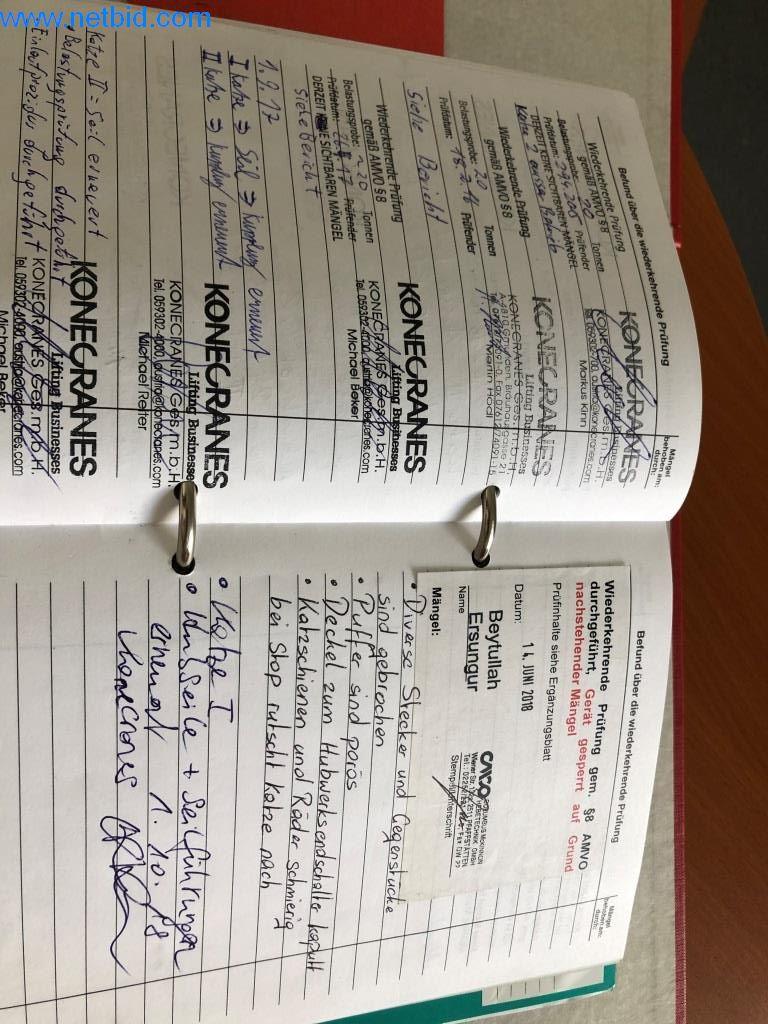 www.netbid.com
Befund über die wiederkehrende Prüfung
Mängel
behoben am:
durch:
Wiederkehrende Prüfung
gemäß AMVO §8
Belastungsprobe: 20 Tonnen
Prüfdatum: Prüfender
DERZEIT KEINE SICHTBAREN MÄNGEL
Katze 2 ausser Betrieb
KONECRANES
Lifting Businesses
KONECRANES Ges.m.b.H.
Markus Kinn
Wiederkehrende Prüfung
gemäß AMVO §8
Belastungsprobe: 20 Tonnen
Prüfdatum: 18.2.16 Prüfender
Siehe Bericht
KONECRANES
Lifting Businesses
KONECRANES Ges.m.b.H.
Martin Hödl
Wiederkehrende Prüfung
gemäß AMVO §8
Belastungsprobe: ~20 Tonnen
Prüfdatum: Prüfender
DERZEIT KEINE SICHTBAREN MÄNGEL
Siehe Bericht
KONECRANES
Lifting Businesses
KONECRANES Ges.m.b.H.
Tel. 059302-4000, austria@konecranes.com
Michael
1.9.17
I Katze ⇒ Seil ⇒ erneuert
II Katze ⇒ erneuert
KONECRANES
Lifting Businesses
KONECRANES Ges.m.b.H.
Tel. 059302-4000, austria@konecranes.com
Michael Reiter
Katze II = Seil erneuert
• Belastungsprüfung durchgeführt
durchgeführt
KONECRANES
Lifting Businesses
KONECRANES Ges.m.b.H.
Tel. 059302-4000, austria@konecranes.com
Michael Reiter
Befund über die wiederkehrende Prüfung
Mängel
behoben am:
durch:
Wiederkehrende Prüfung gem. §8 AMVO
durchgeführt, Gerät gesperrt auf Grund
nachstehender Mängel
Prüfinhalte siehe Ergänzungsblatt
Datum: 14. JUNI 2018
Beytullah
Ersungur
Name
COLUMBUS McKINNON
Stempel/Unterschrift
Mängel:
• Diverse Stecker und Gegenstücke
sind gebrochen
• Puffer sind porös
• Deckel zum Hubwerksendschalter kaputt
• Katzschienen und Räder schmierig
bei Stop rutscht Katze nach
• Katze I
• Hubseile + Seilführungen
erneuert 1.10.18
Konecranes